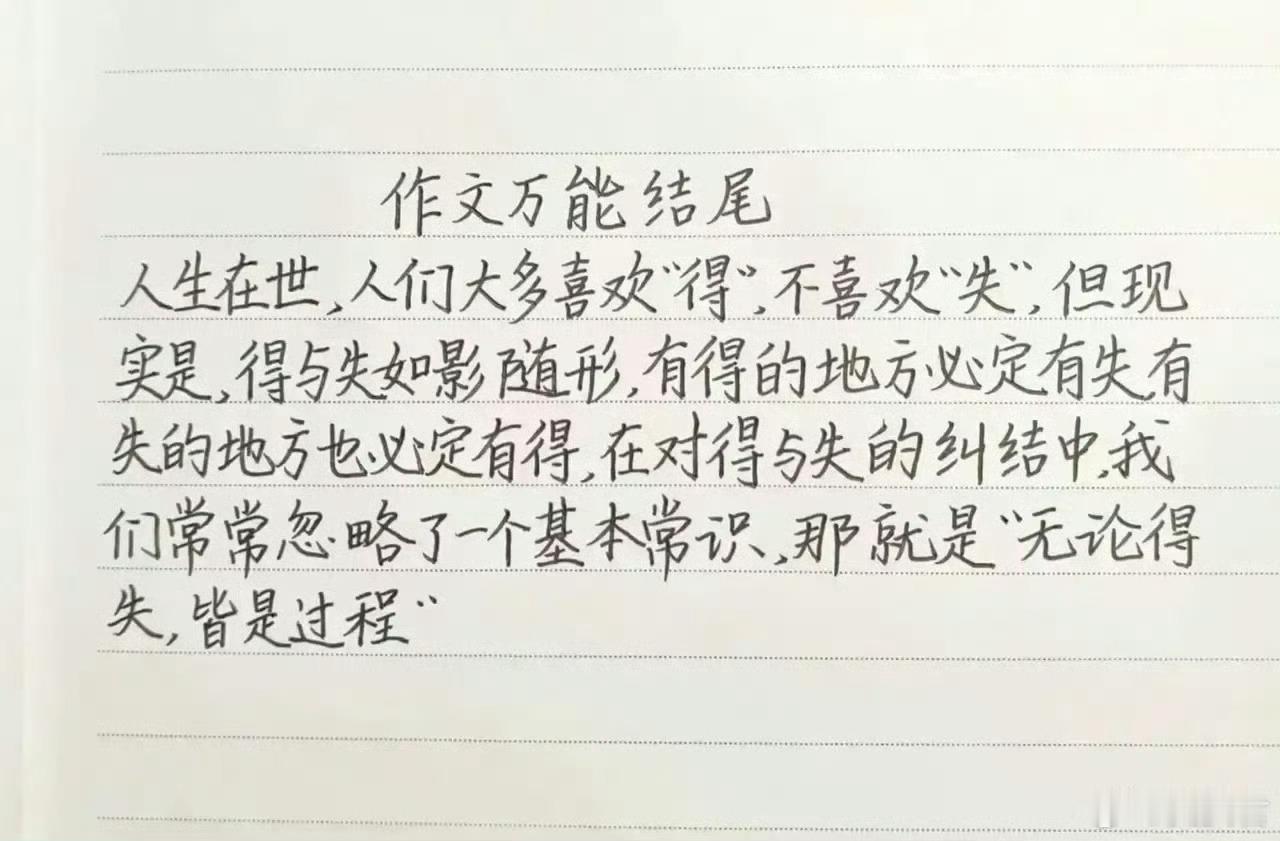 作文万能结尾
人生在世,人们大多喜欢“得”,不喜欢“失”,但现
实是,得与失如影随形,有得的地方必定有失有
失的地方也必定有得,在对得与失的纠结中,我
们常常忽略了一个基本常识,那就是“无论得
失,皆是过程“